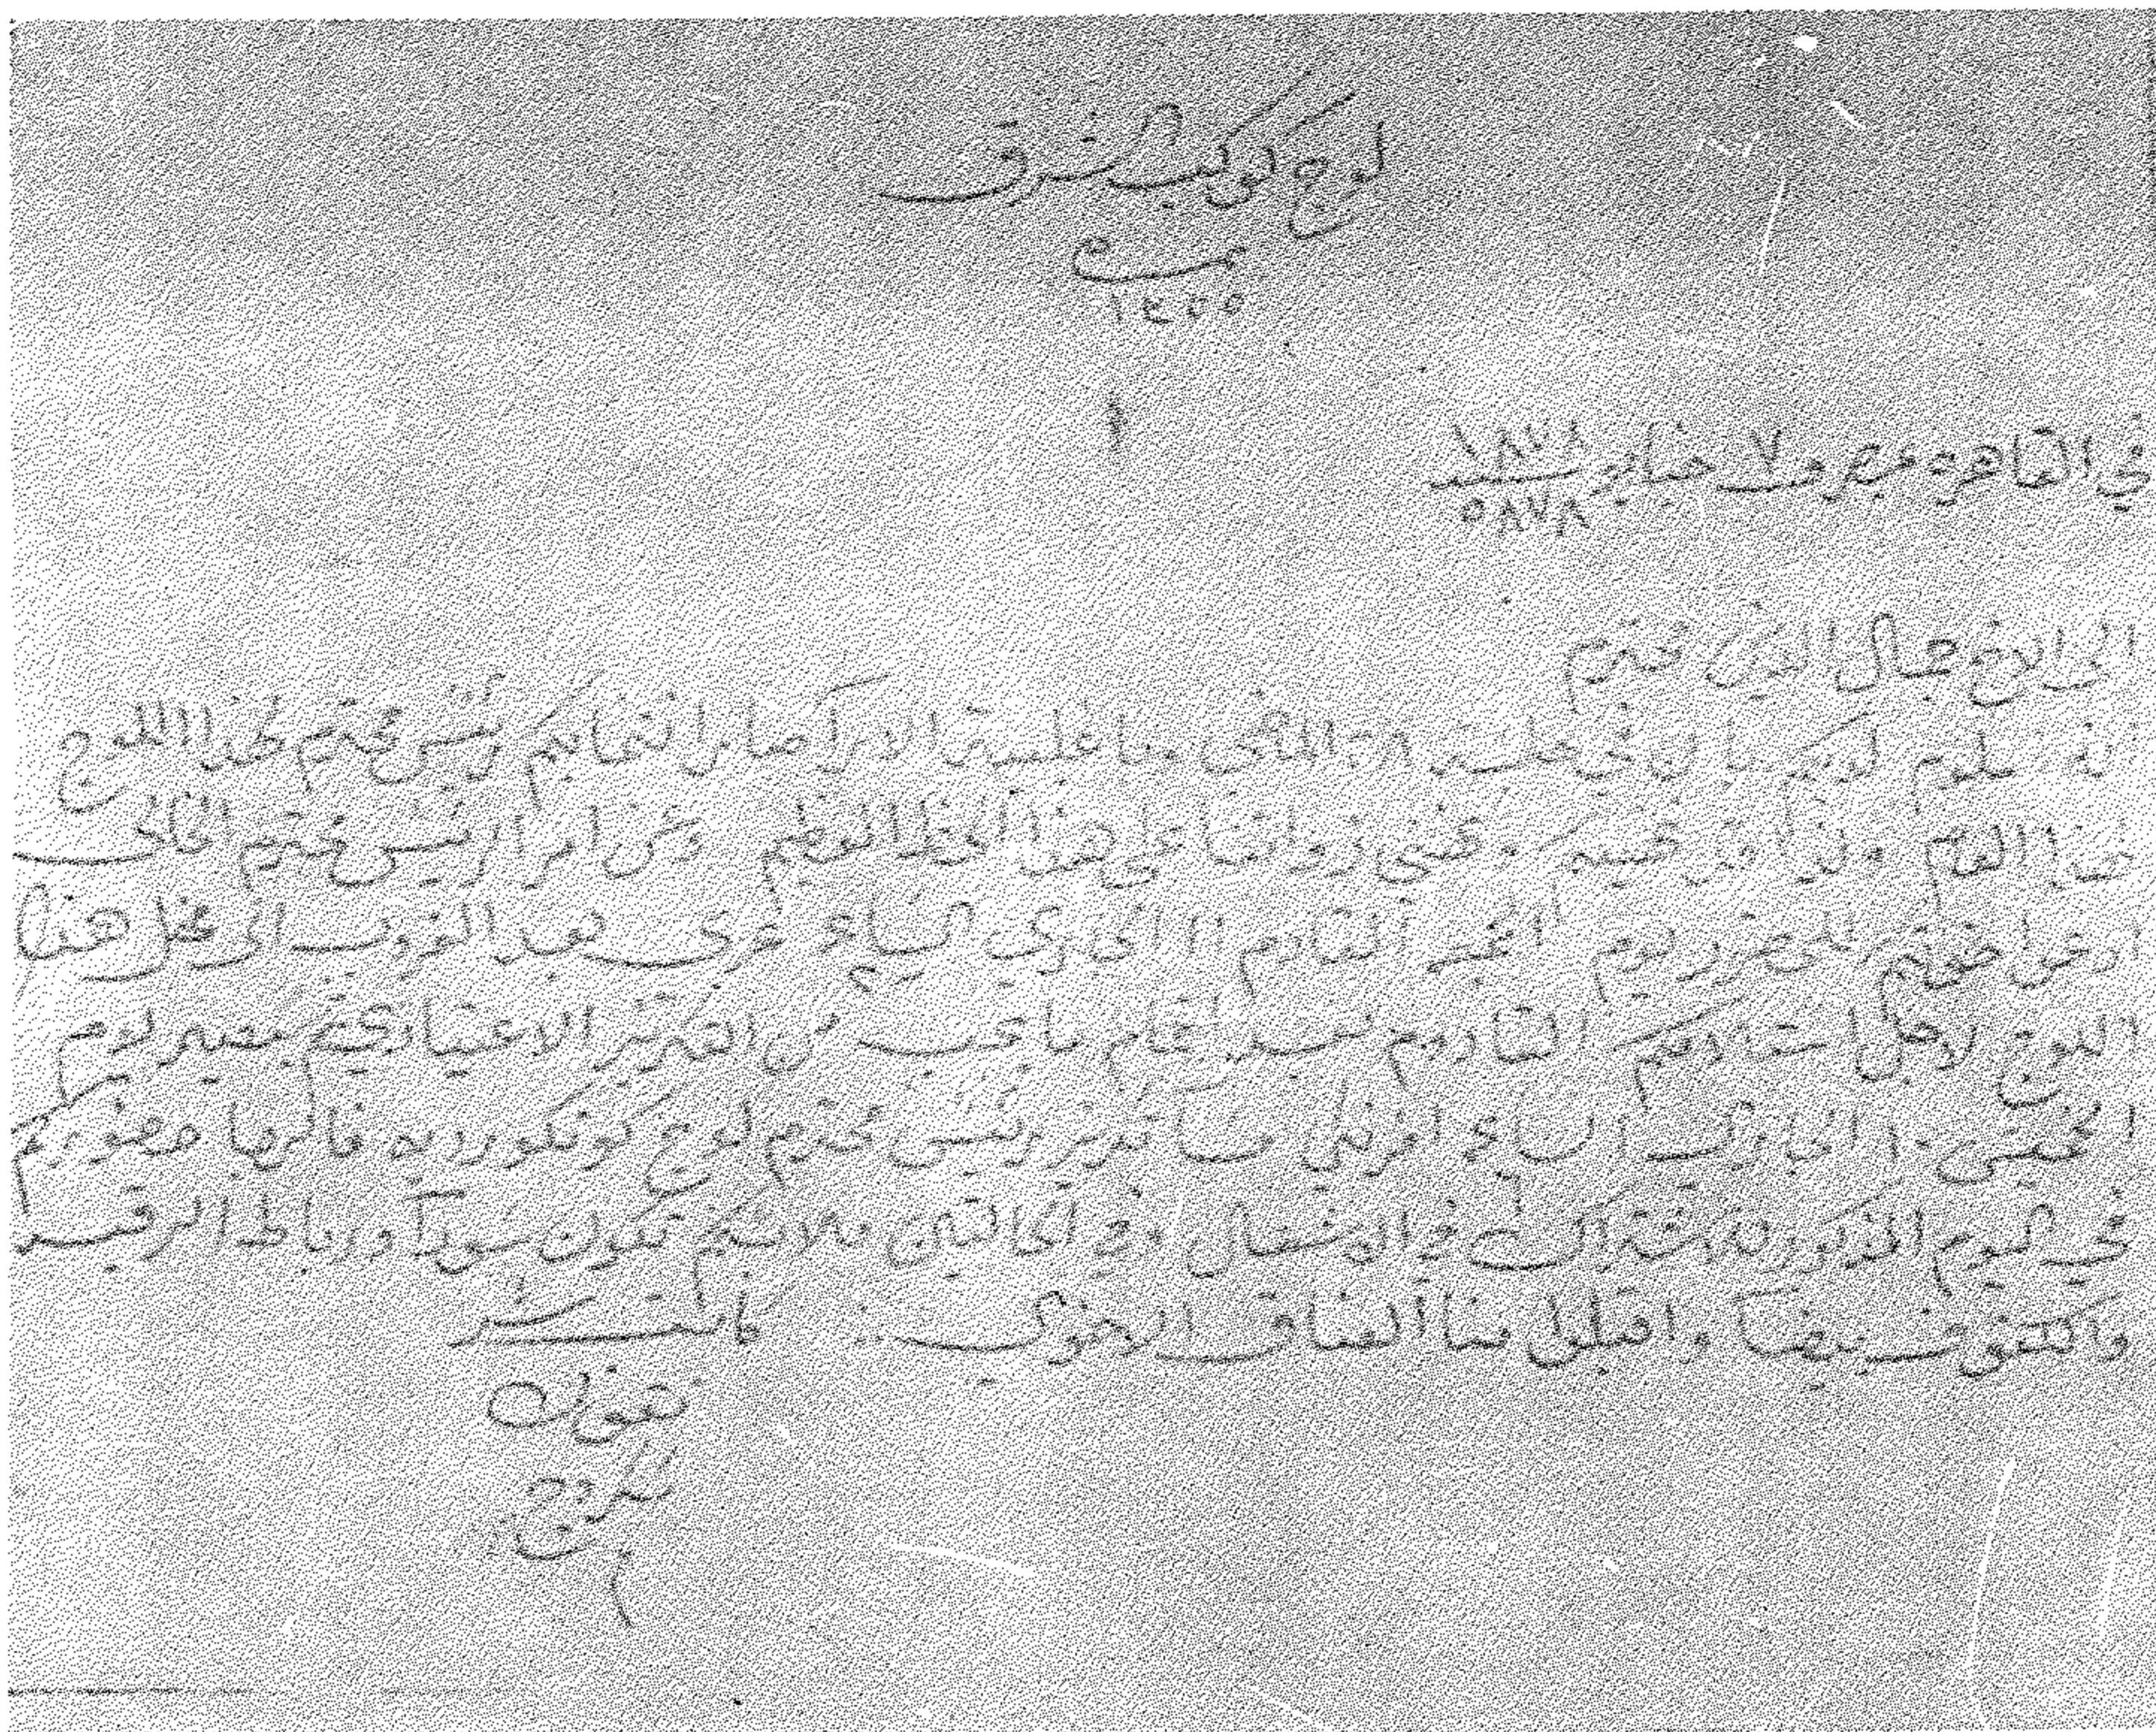 لوج كوكب الشرق
نمرة
١٤٥٥
في القاهرة مصر ٧ جنايو ١٨٧٨
٥٨٧٨
الى الاخ جمال الدين محترم
انه معلوم لديكم بان في جلسة ٢٨ الماضي وباغلبية الاراء صار انتخابكم رئيس محترم لهذا اللوج
لهذا العام ولذا قد نهنيكم ونهني ذواتنا على هذا الحظ العظيم وعن امر الرئيس محترم الحالي
ادعو اخوتكم للحضور يوم الجمعه القادم ١١ الجاري الساعه ٢ عربي بعد الغروب الى محل هذا
اللوج لاجل استلامكم القادوم بعد اتمام ما يجب من التكريز الاعتيادي ثم سيصير يوم
الخميس ١٠ الجاري الساعه افرنجي مساء تكريز رئيس محترم لوج كونكورديه فالرجا حضوركم
في اليوم المذكور للاشتراك في الاشغال وفي الحالتين ملابسكم تكون سودا ورباط الرقبه
والكفوف بيضا واقبلوا منا العناق الاخوي
كاتب سر
نقولا
سكروج